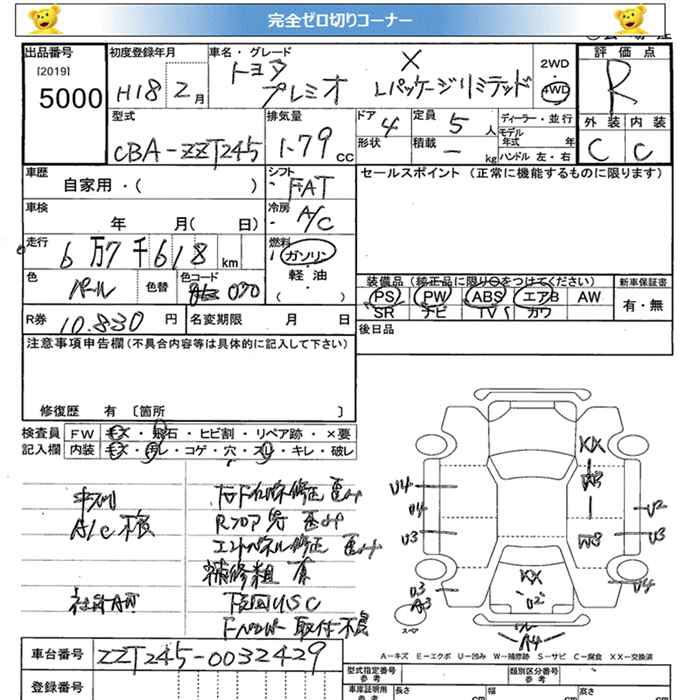 完全ゼロ切りコーナー
出品番号
[2019]
5000
初度登録年月
H18 2月
車名・グレード
トヨタ
プレミオ
X
Lパッケージリミテッド
2WD
4WD
評価点
R
外装 内装
C C
型式
CBA-ZZT245
排気量
1.79 cc
ドア 4
形状
定員 5 人
積載 - kg
ディーラー・並行
モデル年式 年
ハンドル 左・右
車歴
自家用・( )
シフト
FAT
セールスポイント (正常に機能するものに限ります)
車検
年 月( 日)
冷房
A/C
走行
6万7千618 km
燃料
ガソリン
軽油
( )
色
パール
色替
色コード
070
装備品 (純正品に限り○をつけてください)
PS PW ABS エアB AW
SR ナビ TV カワ
新車保証書
有・無
R券 10.830 円
名変期限 月 日
後日品
注意事項申告欄 (不具合内容等は具体的に記入して下さい)
修復歴 有 〔箇所 〕
検査員
記入欄
FW キズ・飛石・ヒビ割・リペア跡・×要
内装 キズ・汚レ・コゲ・穴・スレ・キレ・破レ
A/C不良
エンドパネル修正
補修粗
取付不良
XX
U4
U3
U2
U3
U4
U3
A3
XX
U2
A4
スペア
A-キズ E-エクボ U-凹み W-補修跡 S-サビ C-腐食 XX-交換済
車台番号 ZZT245-0032429
登録番号
型式指定番号
参考
類別区分番号
参考
車庫証明用
参考
長さ cm
幅 cm
高さ cm